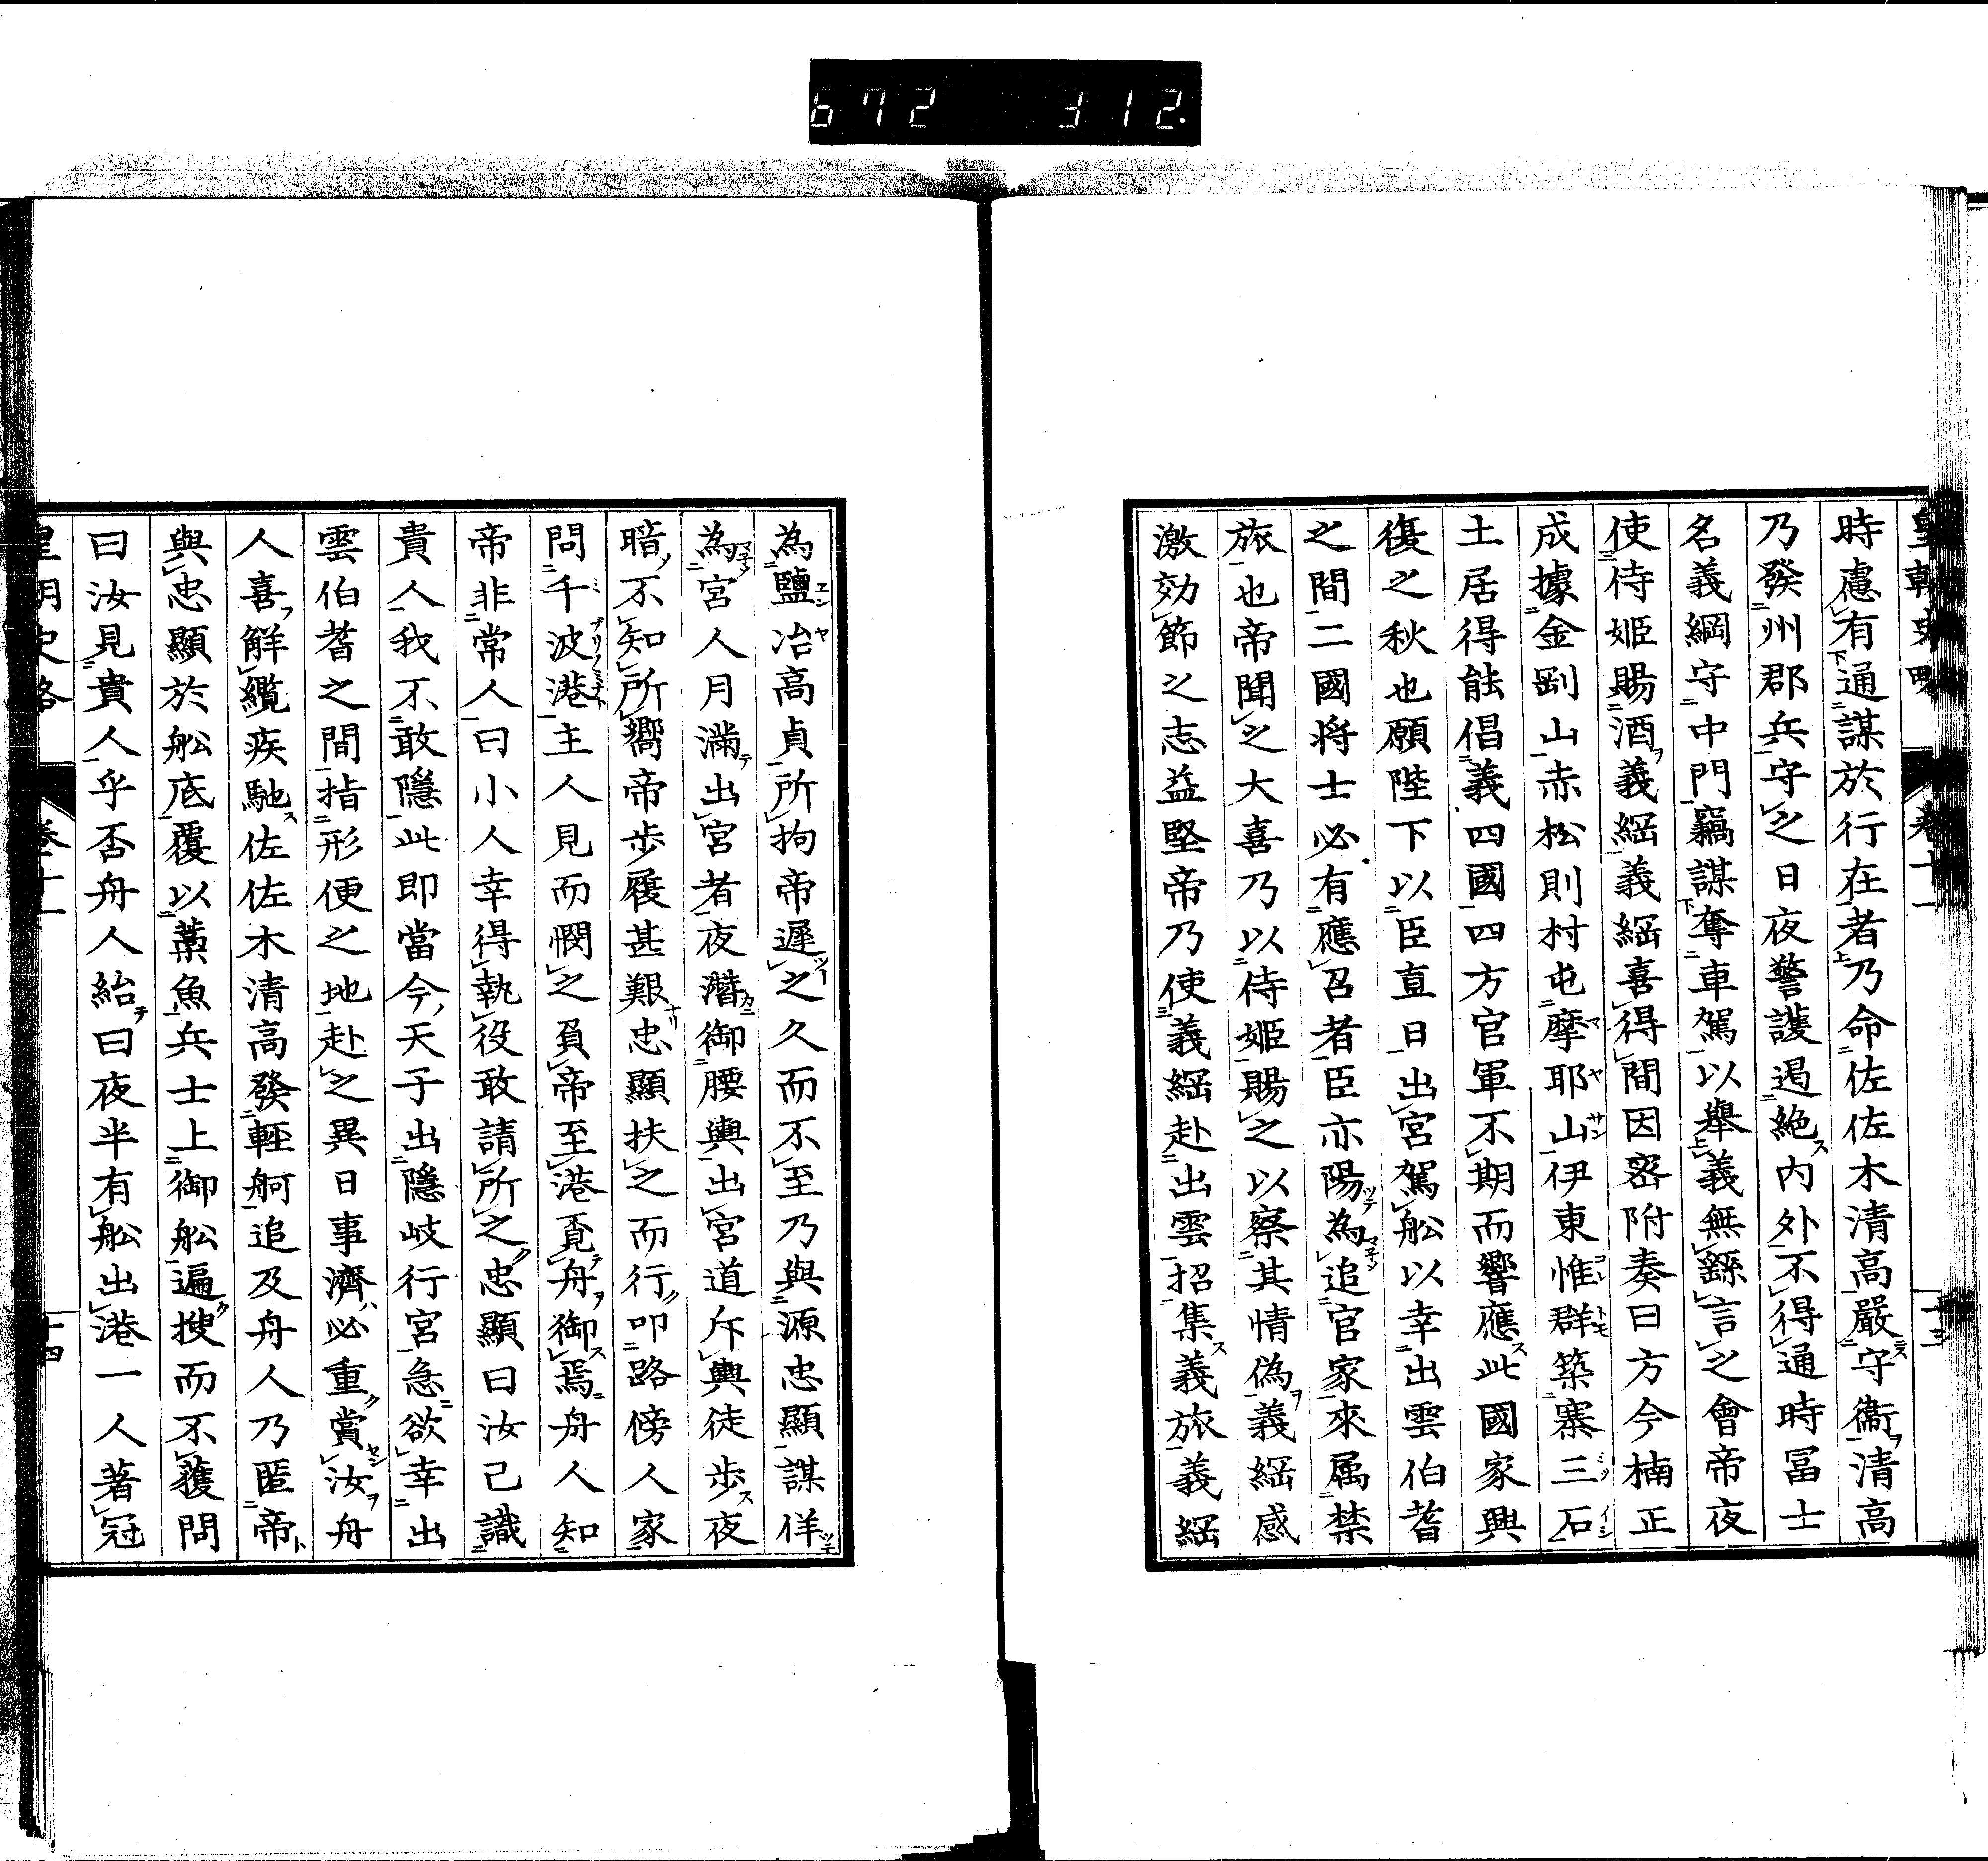 672 312
皇朝史略 卷十一 十三
時慮有通謀於行在者乃命佐佐木清高嚴守衞清高
乃發州郡兵守之日夜警護遏絶内外不得通時冨士
名義綱守中門竊謀奪車駕以擧義無繇言之會帝夜
使侍姬賜酒義綱義綱喜得間因密附奏曰方今楠正
成據金剛山赤松則村屯摩耶山伊東惟群築寨三石
土居得能倡義四國四方官軍不期而響應此國家興
復之秋也願陛下以臣直日出宮駕舩以幸出雲伯耆
之間二國將士必有應召者臣亦陽為追官家來属禁
旅也帝聞之大喜乃以侍姬賜之以察其情偽義綱感
激効節之志益堅帝乃使義綱赴出雲招集義旅義綱
為鹽冶高貞所拘帝遲之久而不至乃與源忠顯謀佯
為宮人月滿出宮者夜潛御腰輿出宮道斥輿徒步夜
暗不知所嚮帝步履甚艱忠顯扶之而行叩路傍人家
問千波港主人見而憫之負帝至港覓舟御焉舟人知
帝非常人曰小人幸得執役敢請所之忠顯曰汝已識
貴人我不敢隱此即當今天子出隱岐行宮急欲幸出
雲伯耆之間指形便之地赴之異日事濟必重賞汝舟
人喜解纜疾馳佐佐木清高發輕舸追及舟人乃匿帝
與忠顯於舩底覆以藁魚兵士上御舩遍搜而不獲問
曰汝見貴人乎否舟人紿曰夜半有舩出港一人著冠
皇朝史略 卷十一 十四